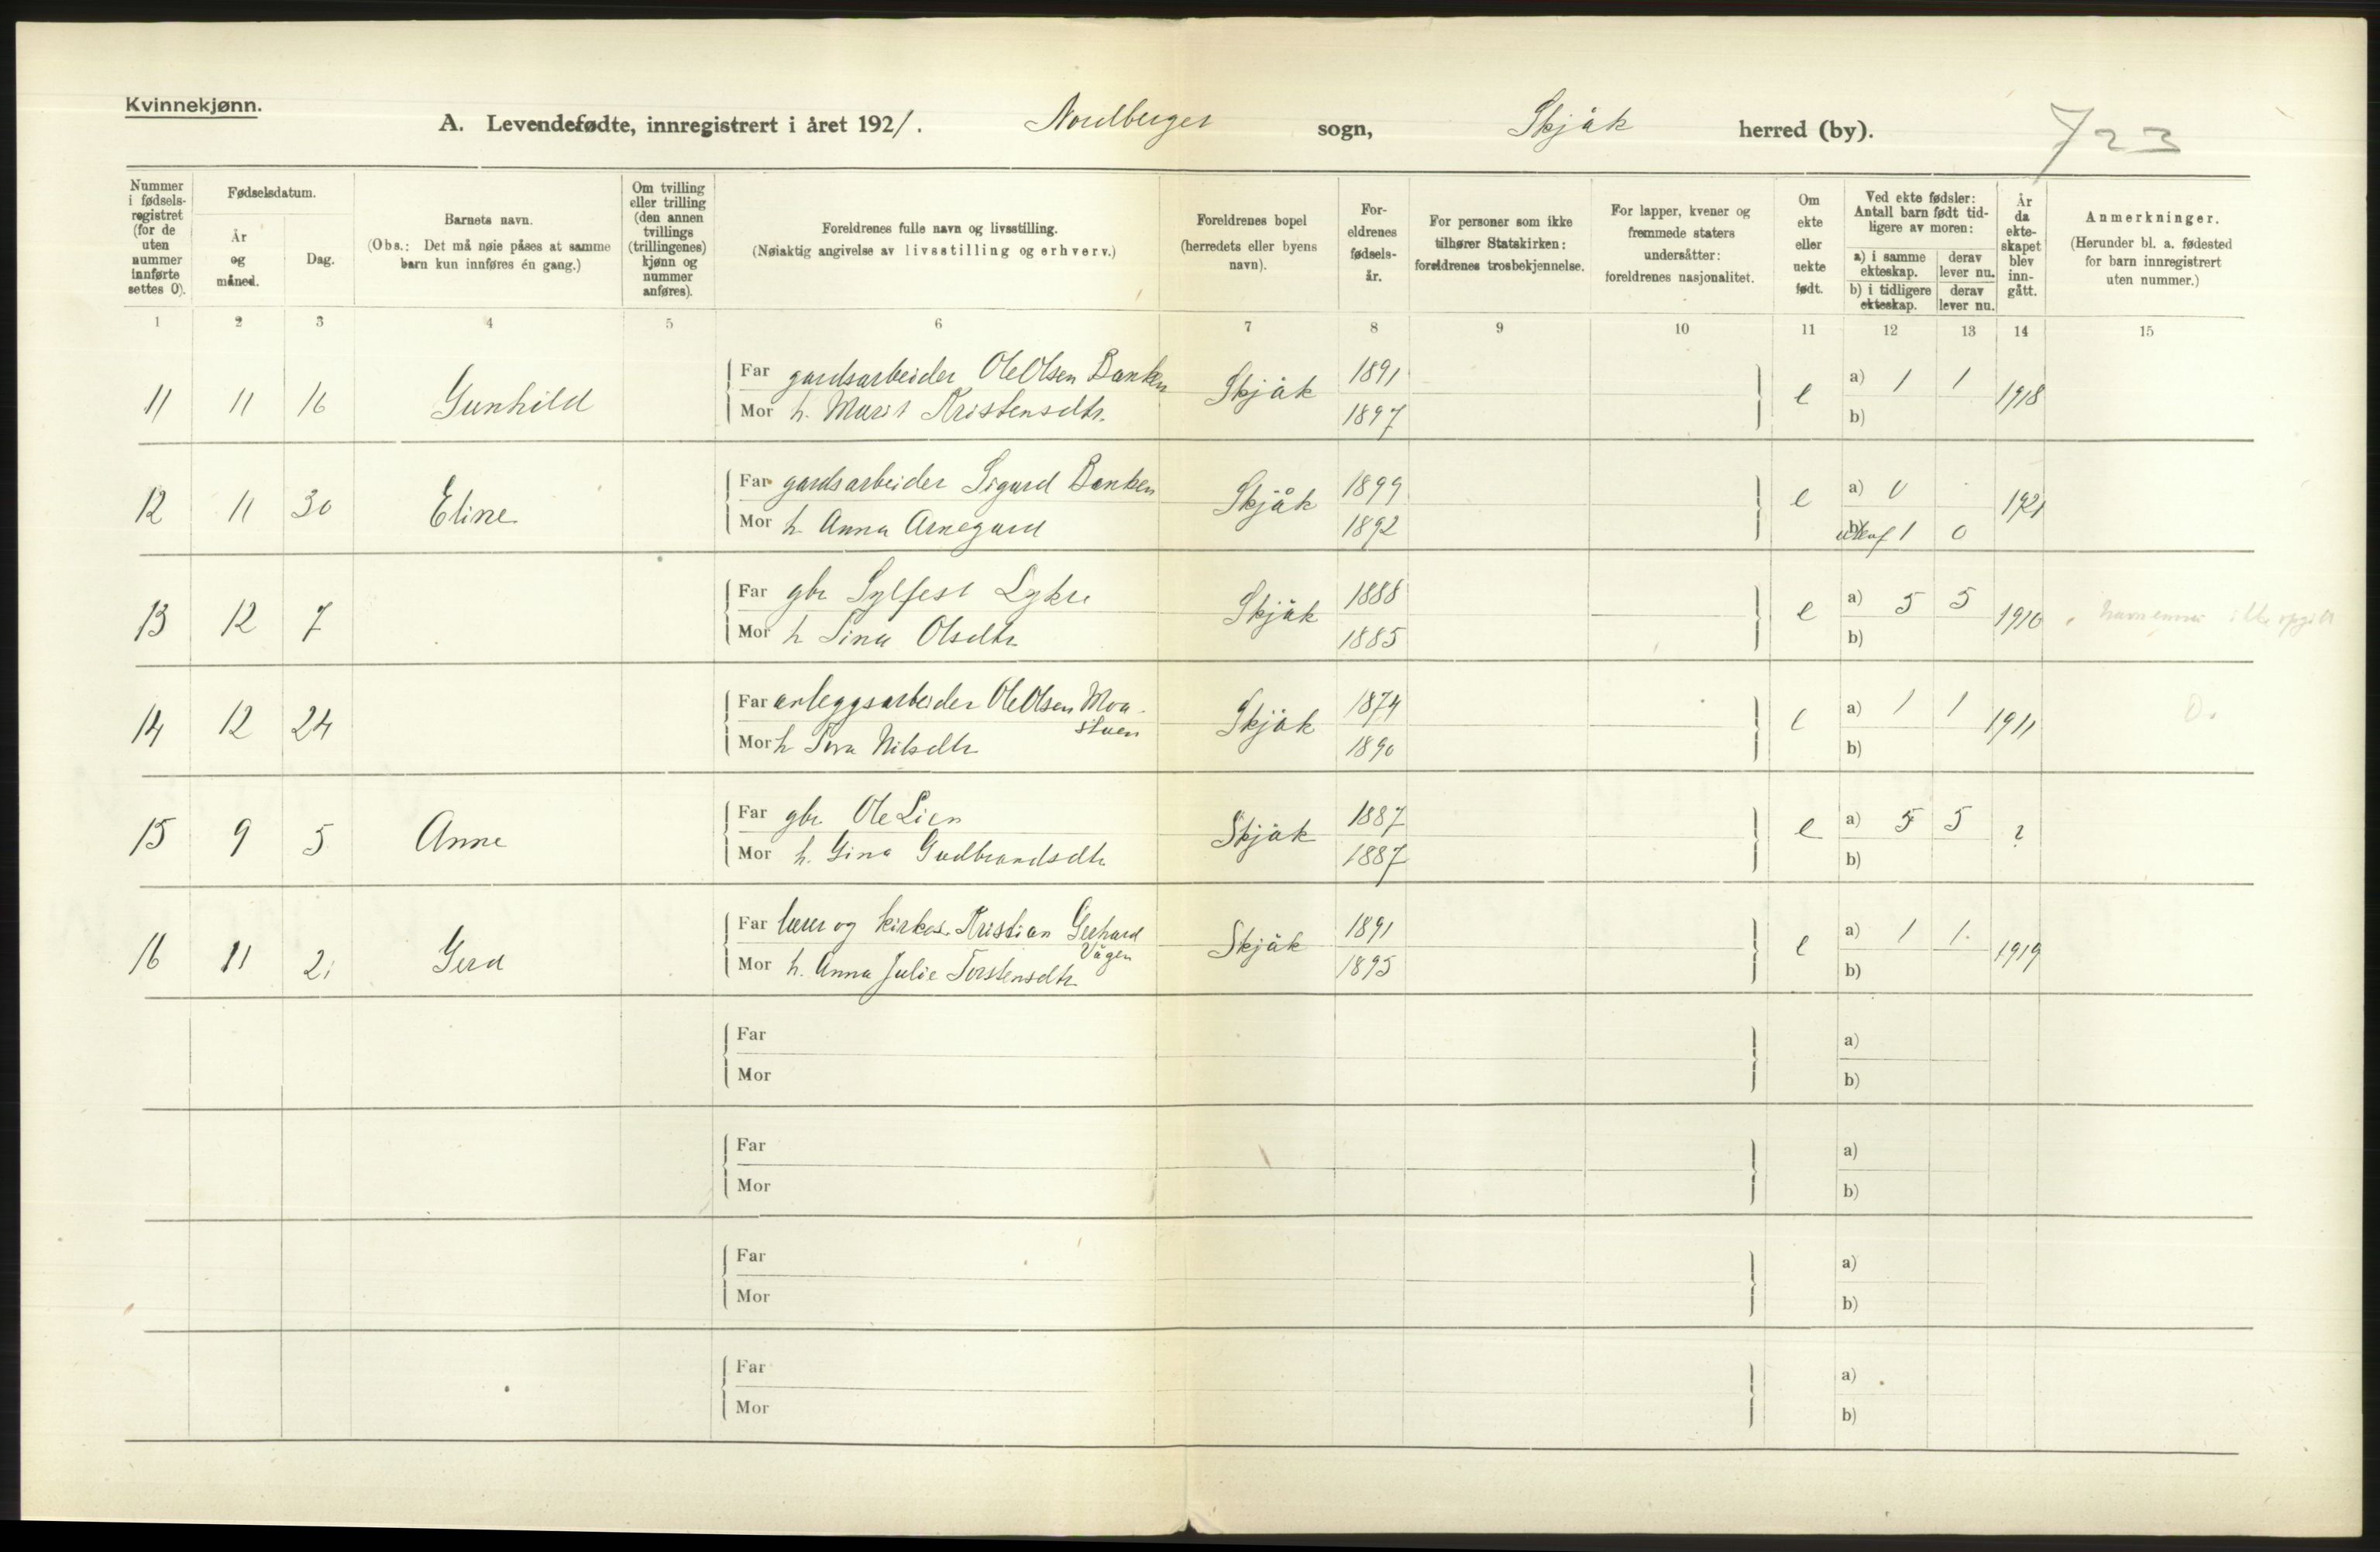 Kvinnekjønn.
A. Levendefødte, innregistrert i året 1921. Nordberges sogn, Skjåk herred (by). 723
Nummer i fødselsregistret (for de uten nummer innførte settes 0).
Fødselsdatum.
År og måned.
Dag.
Barnets navn.
(Obs.: Det må nøie påses at samme barn kun innføres én gang.)
Om tvilling eller trilling (den annen tvillings (trillingenes) kjønn og nummer anføres).
Foreldrenes fulle navn og livsstilling.
(Nøiaktig angivelse av livsstilling og erhverv.)
Foreldrenes bopel (herredets eller byens navn).
Foreldrenes fødselsår.
For personer som ikke tilhører Statskirken: foreldrenes trosbekjennelse.
For lapper, kvener og fremmede staters undersåtter: foreldrenes nasjonalitet.
Om ekte eller uekte født.
Ved ekte fødsler: Antall barn født tidligere av moren:
a) i samme ekteskap. derav lever nu.
b) i tidligere ekteskap. derav lever nu.
År da ekteskapet blev inngått.
Anmerkninger.
(Herunder bl. a. fødested for barn innregistrert uten nummer.)
1 2 3 4 5 6 7 8 9 10 11 12 13 14 15
Far gardsarbeider Ole Olsen Banken 1891
11 11 16 Gunhild Skjåk e a) 1 1 1918
Mor h. Marit Kristensdtr. 1897 b)
Far gardsarbeider Sigurd Banken 1899
12 11 30 Eline Skjåk e a) 0 1921
Mor h. Anna Arnegard 1892 b) 1 0
Far gbr Sylfest Lykre 1888
13 12 7 Skjåk e a) 5 5 1910 ikke opgitt
Mor h Sina Olsdtr 1885 b)
Far anleggsarbeider Ole Olsen Moastuen 1874
14 12 24 Skjåk e a) 1 1 1911 Do
Mor h Tora Nilsdtr 1890 b)
Far gbr. Ole Lien 1887
15 9 5 Anne Skjåk e a) 5 5 ?
Mor h. Gina Gudbrandsdtr 1887 b)
Far lærer og kirkes. Kristian Gerhard Vågen 1891
16 11 21 Gerd Skjåk e a) 1 1. 1919
Mor h. Anna Julie Torstensdtr 1895 b)
Far a)
Mor b)
Far a)
Mor b)
Far a)
Mor b)
Far a)
Mor b)